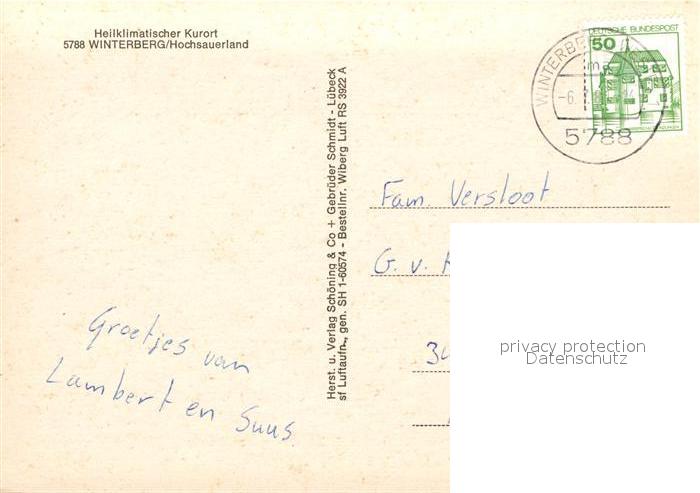 Heilklimatischer Kurort
5788 WINTERBERG/Hochsauerland
Groetjes van
Lambert en Suus.
Herst. u. Verlag Schöning & Co + Gebrüder Schmidt - Lübeck
sf Luftaufn., gen. SH 1-60574 - Bestellnr. Wiberg Luft RS 3922 A
DEUTSCHE BUNDESPOST
50
-6.
5788
Fam. Versloot
G. v.
privacy protection
Datenschutz